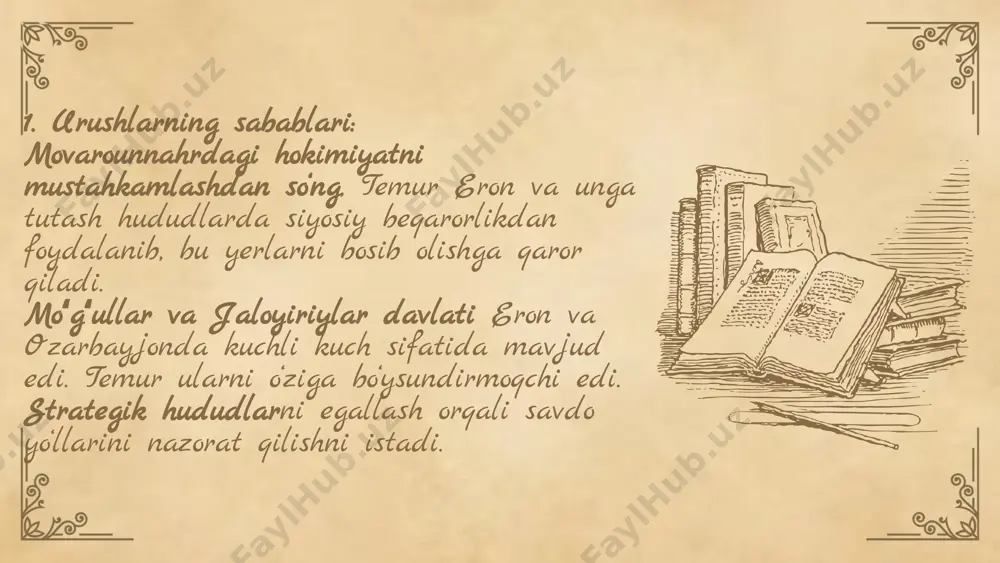 1. Urushlarning sabablari:
Movarounnahrdagi hokimiyatni
mustahkamlashdan so'ng Temur Eron va unga
tutash hududlarda siyosiy beqarorlikdan
foydalanib, bu yerlarni bosib olishga qaror
qiladi.
Mo'g'ullar va Jaloyiriylar davlati Eron va
Ozarbayjonda kuchli kuch sifatida mavjud
edi. Temur ularni o'ziga bo'ysundirmoqchi edi.
Strategik hududlarni egallash orqali savdo
yo'llarini nazorat qilishni istadi.
FaylHub.uz
FaylHub.uz
FaylHub.uz
FaylHub.uz
FaylHub.uz